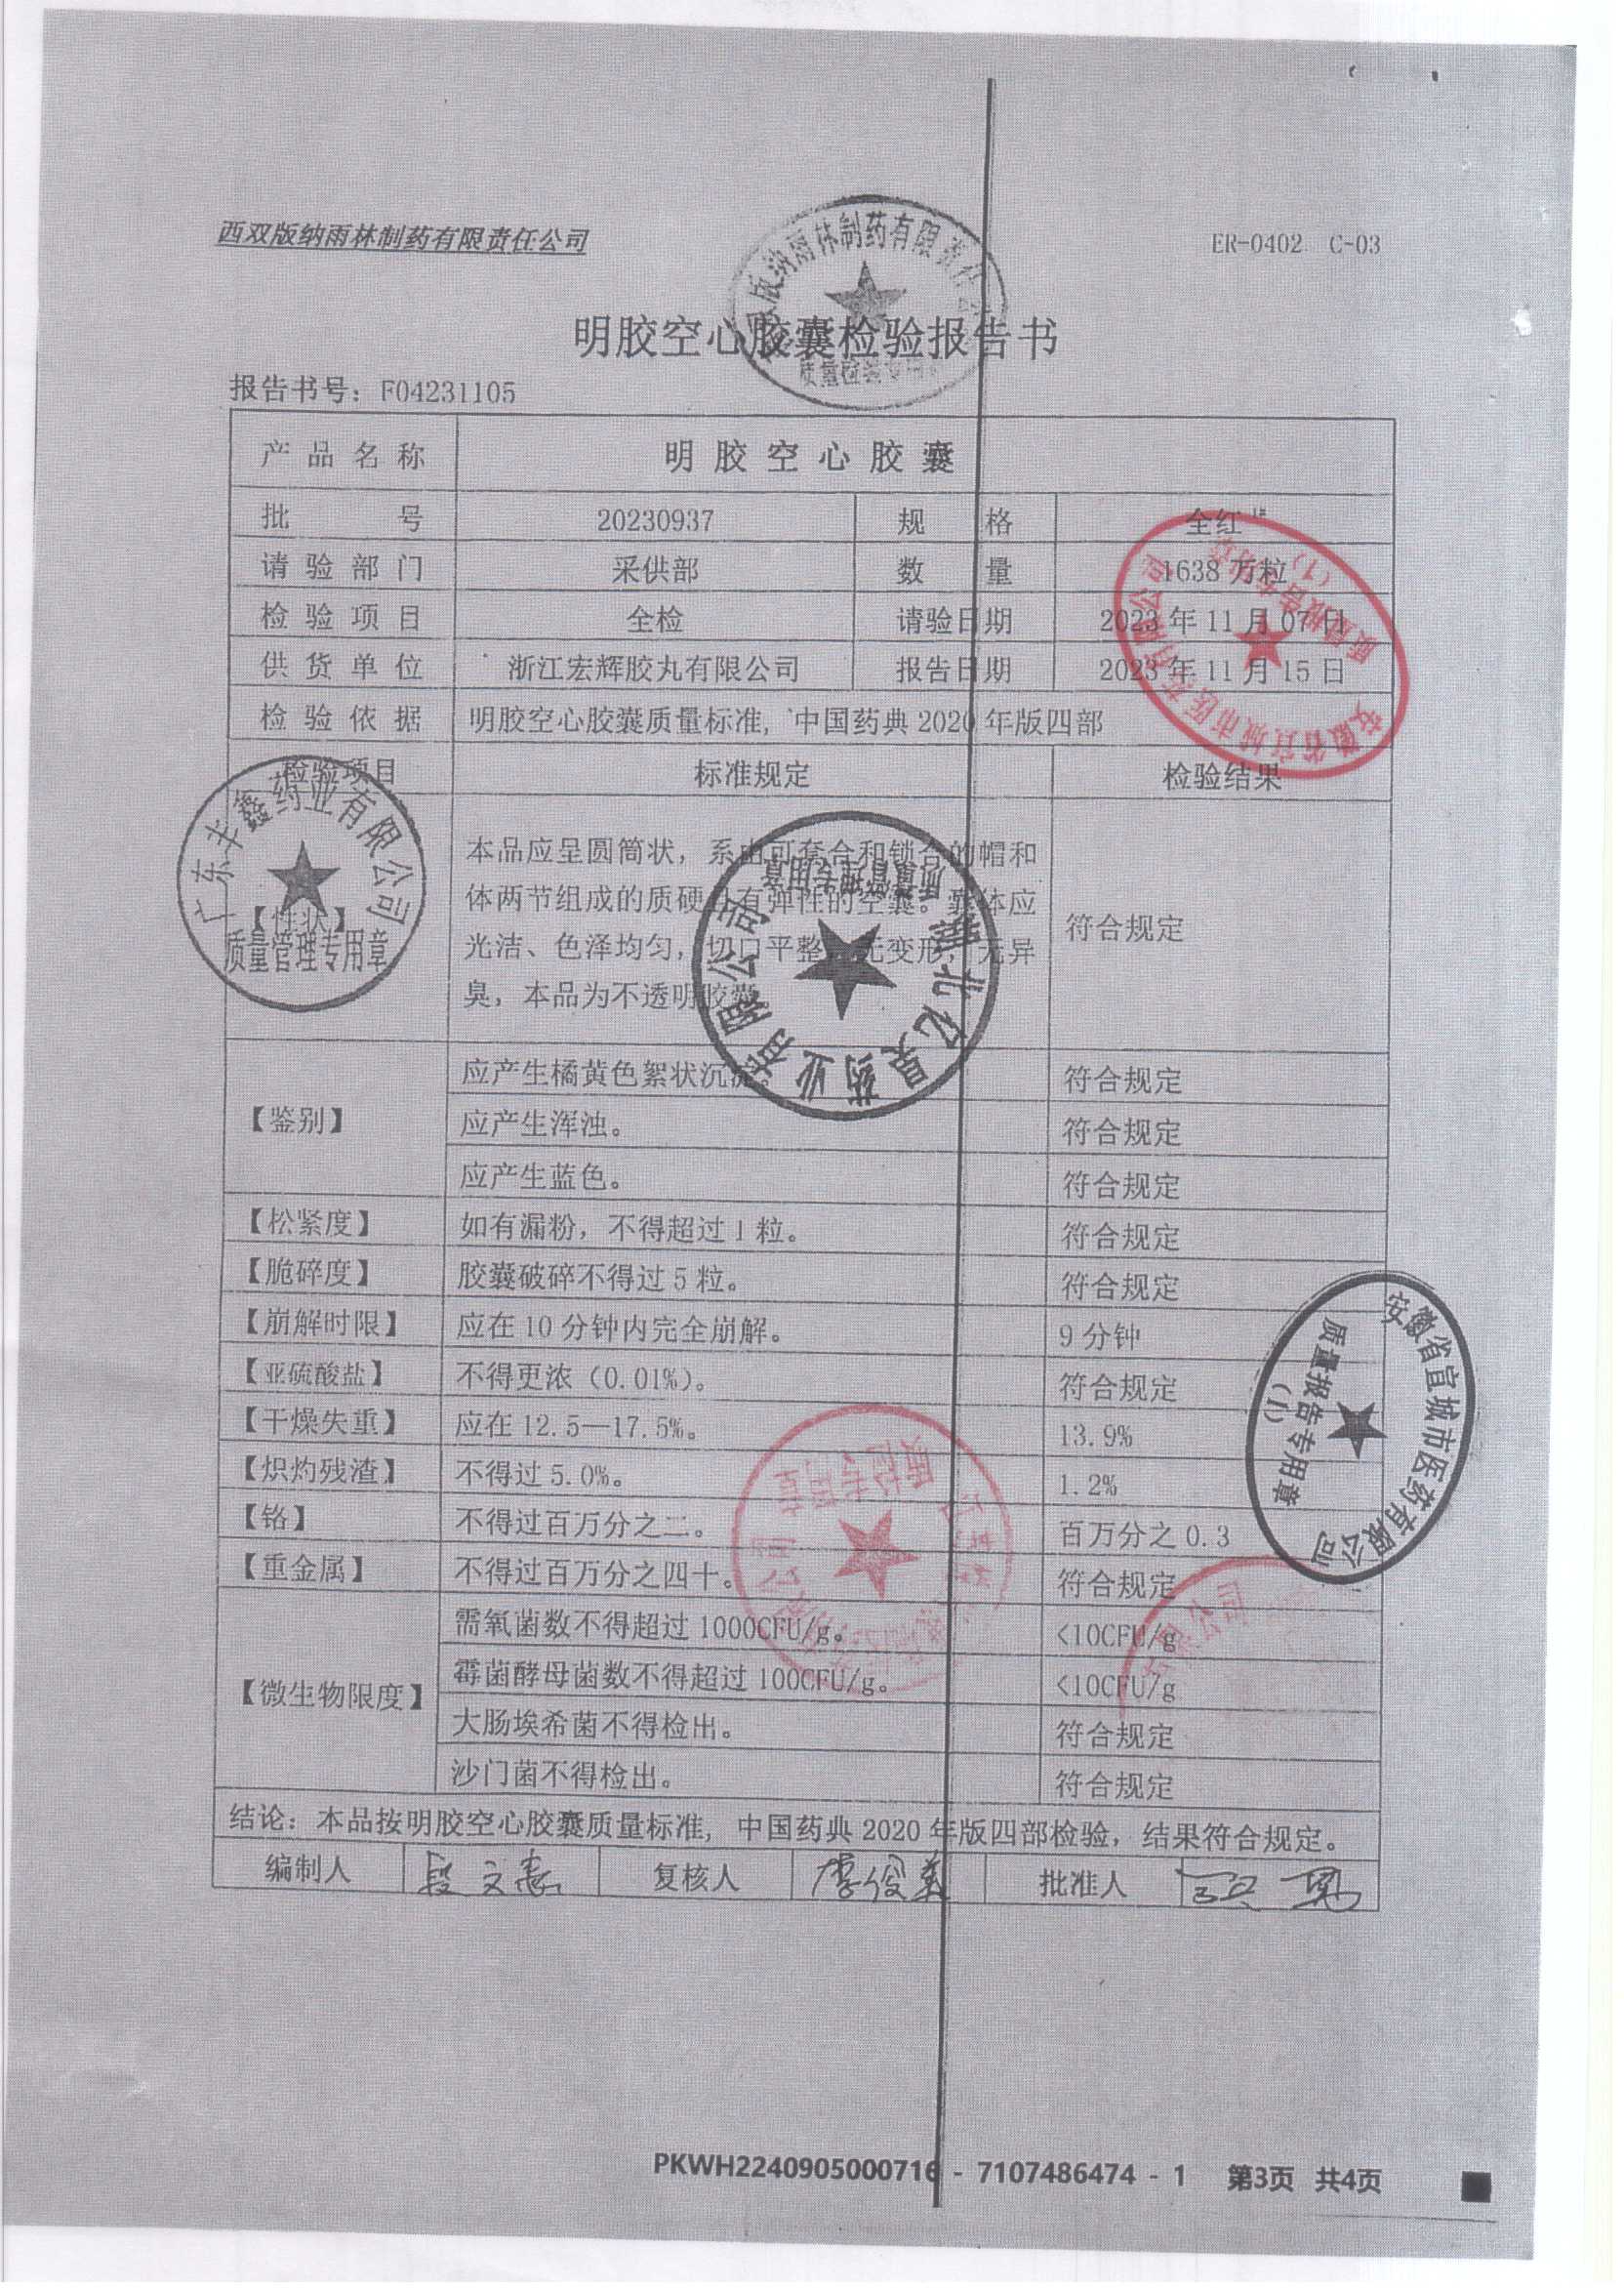 西双版纳雨林制药有限责任公司
ER-0402 C-03
明胶空心胶囊检验报告书
质量检验专用
报告书号：F04231105
产品名称 明胶空心胶囊
批号 20230937 规格 全红1#
请验部门 采供部 数量 1638万粒
检验项目 全检 请验日期 2023年11月07日
供货单位 浙江宏辉胶丸有限公司 报告日期 2023年11月15日
检验依据 明胶空心胶囊质量标准，中国药典2020年版四部
安徽省宣城市医药有限公司
质量报告专用章
（1）
检验项目 标准规定 检验结果
广东丰鑫药业有限公司
质量管理专用章
【性状】
本品应呈圆筒状，系由可套合和锁合的帽和
体两节组成的质硬且有弹性的空囊。囊体应
光洁、色泽均匀，切口平整、无变形，无异
臭，本品为不透明胶囊。
符合规定
湖北亿昊药业有限公司
质量管理专用章
【鉴别】
应产生橘黄色絮状沉淀。 符合规定
应产生浑浊。 符合规定
应产生蓝色。 符合规定
【松紧度】 如有漏粉，不得超过1粒。 符合规定
【脆碎度】 胶囊破碎不得过5粒。 符合规定
【崩解时限】 应在10分钟内完全崩解。 9分钟
【亚硫酸盐】 不得更浓（0.01%）。 符合规定
【干燥失重】 应在12.5—17.5%。 13.9%
【炽灼残渣】 不得过5.0%。 1.2%
【铬】 不得过百万分之二。 百万分之0.3
【重金属】 不得过百万分之四十。 符合规定
安徽省宣城市医药有限公司
质量报告专用章
（1）
质检专用章
公司
有限公司
【微生物限度】
需氧菌数不得超过1000CFU/g。 <10CFU/g
霉菌酵母菌数不得超过100CFU/g。 <10CFU/g
大肠埃希菌不得检出。 符合规定
沙门菌不得检出。 符合规定
结论：本品按明胶空心胶囊质量标准，中国药典2020年版四部检验，结果符合规定。
编制人 复核人 批准人
PKWH2240905000716 - 7107486474 - 1 第3页 共4页